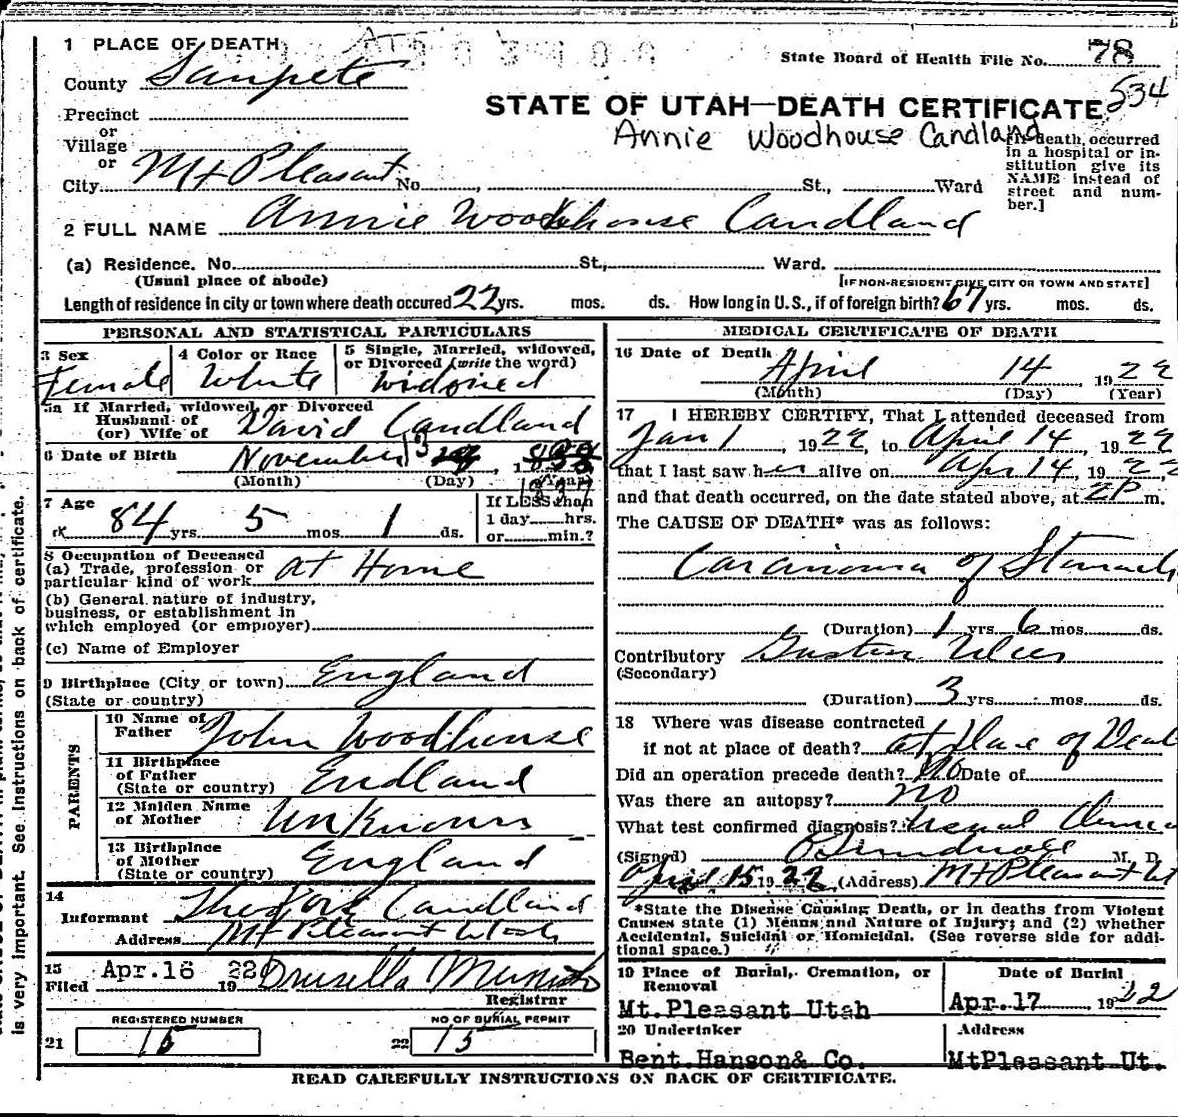 1 PLACE OF DEATH
County Sanpete
State Board of Health File No. 78
534
STATE OF UTAH—DEATH CERTIFICATE
Annie Woodhouse Candland
Precinct
or
Village
or
City Mt Pleasant No. , St., Ward
[If death, occurred
in a hospital or in-
stitution give its
NAME instead of
street and num-
ber.]
2 FULL NAME Annie Woodhouse Candland
(a) Residence. No. St., Ward.
(Usual place of abode) [IF NON-RESIDENT GIVE CITY OR TOWN AND STATE]
Length of residence in city or town where death occured 22 yrs. mos. ds. How long in U.S., if of foreign birth? 67 yrs. mos. ds.
PERSONAL AND STATISTICAL PARTICULARS
3 Sex
Female
4 Color or Race
White
5 Single, Married, widowed,
or Divorced (write the word)
Widowed
5a If Married, widowed, or Divorced
Husband of
(or) Wife of David Candland
6 Date of Birth November 13
(Month) (Day) (Year)
7 Age
84 yrs. 5 mos. 1 ds.
If LESS than
1 day hrs.
or min.?
8 Occupation of Deceased
(a) Trade, profession or
particular kind of work At Home
(b) General nature of industry,
business, or establishment in
which employed (or employer)
(c) Name of Employer
9 Birthplace (City or town) England
(State or country)
PARENTS
10 Name of
Father John Woodhouse
11 Birthplace
of Father
(State or country) Endland
12 Maiden Name
of Mother Unknown
13 Birthplace
of Mother
(State or country) England
14
Informant Candland
Address Mt Pleasant Utah
15
Filed Apr.16 1922 Drusilla
Registrar
REGISTERED NUMBER
21 15
NO OF BURIAL PERMIT
22 15
MEDICAL CERTIFICATE OF DEATH
16 Date of Death April 14, 1922
(Month) (Day) (Year)
17 I HEREBY CERTIFY, That I attended deceased from
Jan 1, 1922, to April 14, 1922
that I last saw her alive on Apr 14, 1922
and that death occurred, on the date stated above, at 2P m.
The CAUSE OF DEATH* was as follows:
Carcinoma of Stomach
(Duration) 1 yrs 6 mos. ds.
Contributory Ulcer
(Secondary)
(Duration) 3 yrs mos. ds.
18 Where was disease contracted
if not at place of death? at place of Death
Did an operation precede death? No Date of
Was there an autopsy? No
What test confirmed diagnosis? Usual
(Signed) M. D.
April 15 1922 (Address) Mt Pleasant Ut
*State the Disease Causing Death, or in deaths from Violent
Causes state (1) Means and Nature of Injury; and (2) whether
Accidental, Suicidal or Homicidal. (See reverse side for addi-
tional space.)
19 Place of Burial, Cremation, or
Removal
Mt.Pleasant Utah
Date of Burial
Apr.17 1922
20 Undertaker
Bent.Hanson& Co.
Address
MtPleasant Ut.
READ CAREFULLY INSTRUCTIONS ON BACK OF CERTIFICATE.
is very important. See instructions on back of certificate.